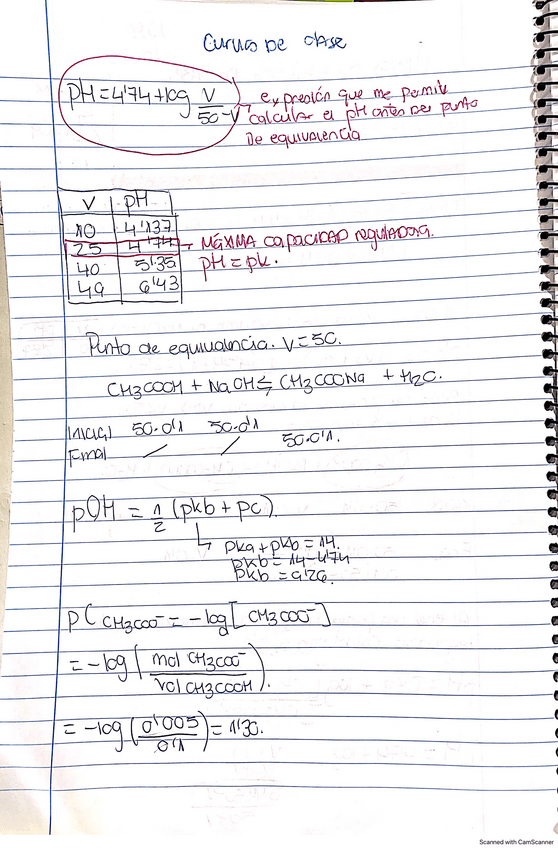 Curvas De clase
pH = 4'74 + log V / 50-V → expresión que me permite
calcular el pH antes del punto
De equivalencia
V | pH
10 | 4'137
25 | 4'74 → MÁXIMA capacidad reguladora.
40 | 5'35 pH = pk.
49 | 6'43
Punto de equivalencia. V = 50.
CH3COOH + NaOH ⇆ CH3COONa + H2O.
Inicial 50·0'1 50·0'1
Final / / 50·0'1.
pOH = 1/2 (pkb + pc)
↳ pka + pkb = 14.
pkb = 14 - 4'74
pkb = 9'26.
pC CH3COO⁻ = -log [CH3COO⁻]
= -log (mol CH3COO⁻ / vol CH3COOH).
= -log (0'005 / 0'1) = 1'30.
Scanned with CamScanner